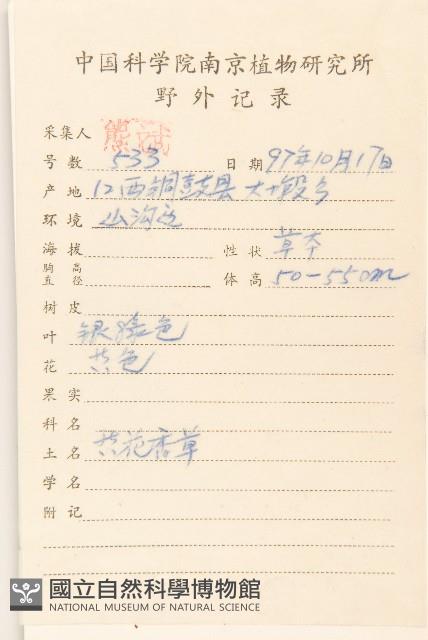 中国科学院南京植物研究所
野外记录
采集人 熊
号数 533 日期 97年10月17日
产地 江西铜鼓县 大
环境 山沟边
海拔 性状 草本
胸高直径 体高 50-550m
树皮
叶 银绿色
花 黄色
果实
科名
土名 黄花香草
学名
附记
國立自然科學博物館
NATIONAL MUSEUM OF NATURAL SCIENCE